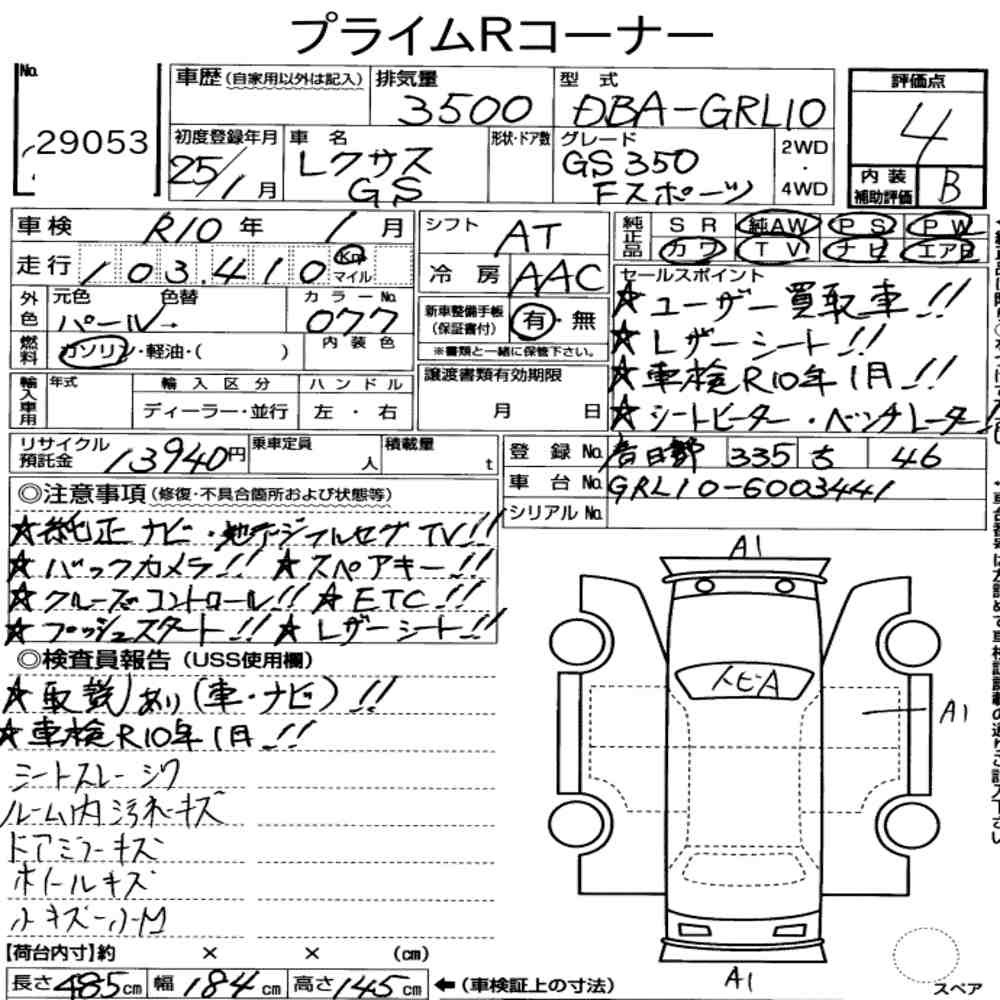 プライムRコーナー
No.
29053
車歴(自家用以外は記入)
排気量
3500
型 式
DBA-GRL10
評価点
4
内装補助評価 B
初度登録年月
25/1月
車 名
レクサス
GS
形状・ドア数
グレード
GS350
Fスポーツ
2WD
・
4WD
車検 R10年 1月
走行 103.410 Km マイル
外色 元色 色替 カラーNo.
パール→ 077
燃料 ガソリン・軽油・( ) 内装色
輸入車用 年式 輸入区分 ハンドル
ディーラー・並行 左・右
シフト AT
冷房 AAC
新車整備手帳(保証書付) 有・無
※書類と一緒に保管下さい。
譲渡書類有効期限
月 日
純正品 SR 純AW PS PW
カワ TV ナビ エアB
セールスポイント
★ユーザー買取車!!
★レザーシート!!
★車検R10年1月!!
★シートヒーター・ベンチレーター!!
リサイクル預託金 13940円
乗車定員 人
積載量 t
登録No. 春日部 335 ち 46
車台No. GRL10-6003441
シリアルNo.
◎注意事項(修復・不具合箇所および状態等)
★純正ナビ・地デジフルセグTV!!
★バックカメラ!! ★スペアキー!!
★クルーズコントロール!! ★ETC!!
★プッシュスタート!! ★レザーシート!!
◎検査員報告(USS使用欄)
★取説あり(車・ナビ)!!
★車検R10年1月!!
シートスレーシワ
ルーム内汚れキズ
ドアミラーキズ
ホイールキズ
小キズ小凹
A1
トビA
A1
A1
スペア
【荷台内寸】約 × × (cm)
長さ485cm 幅184cm 高さ145cm ←(車検証上の寸法)